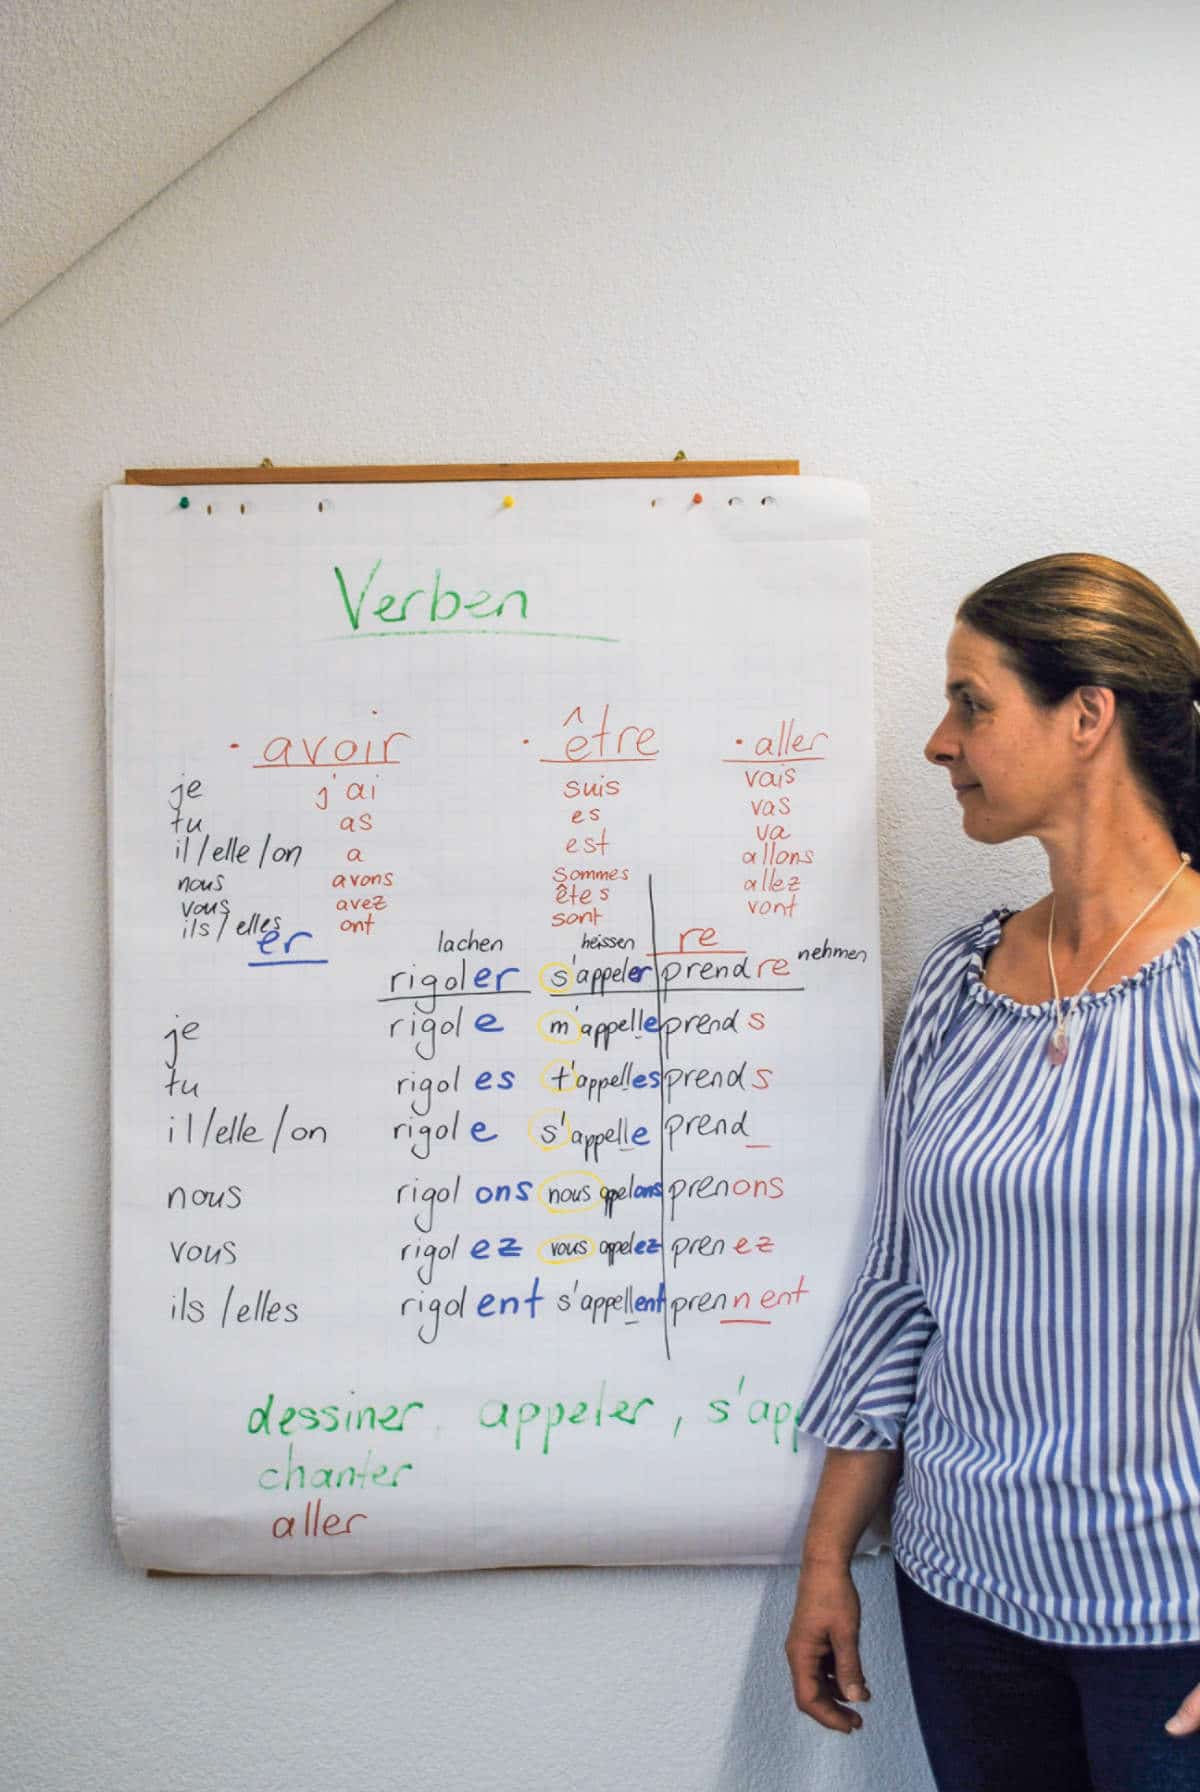 Verben
· avoir · être · aller
je j'ai suis vais
tu as es vas
il/elle/on a est va
nous avons sommes allons
vous avez êtes allez
ils/elles ont sont vont
er lachen heissen re nehmen
rigoler s'appeler prendre
je rigole m'appelle prends
tu rigoles t'appelles prends
il/elle/on rigole s'appelle prend_
nous rigolons nous appelons prenons
vous rigolez vous appelez prenez
ils/elles rigolent s'appellent prennent
dessiner, appeler, s'app
chanter
aller